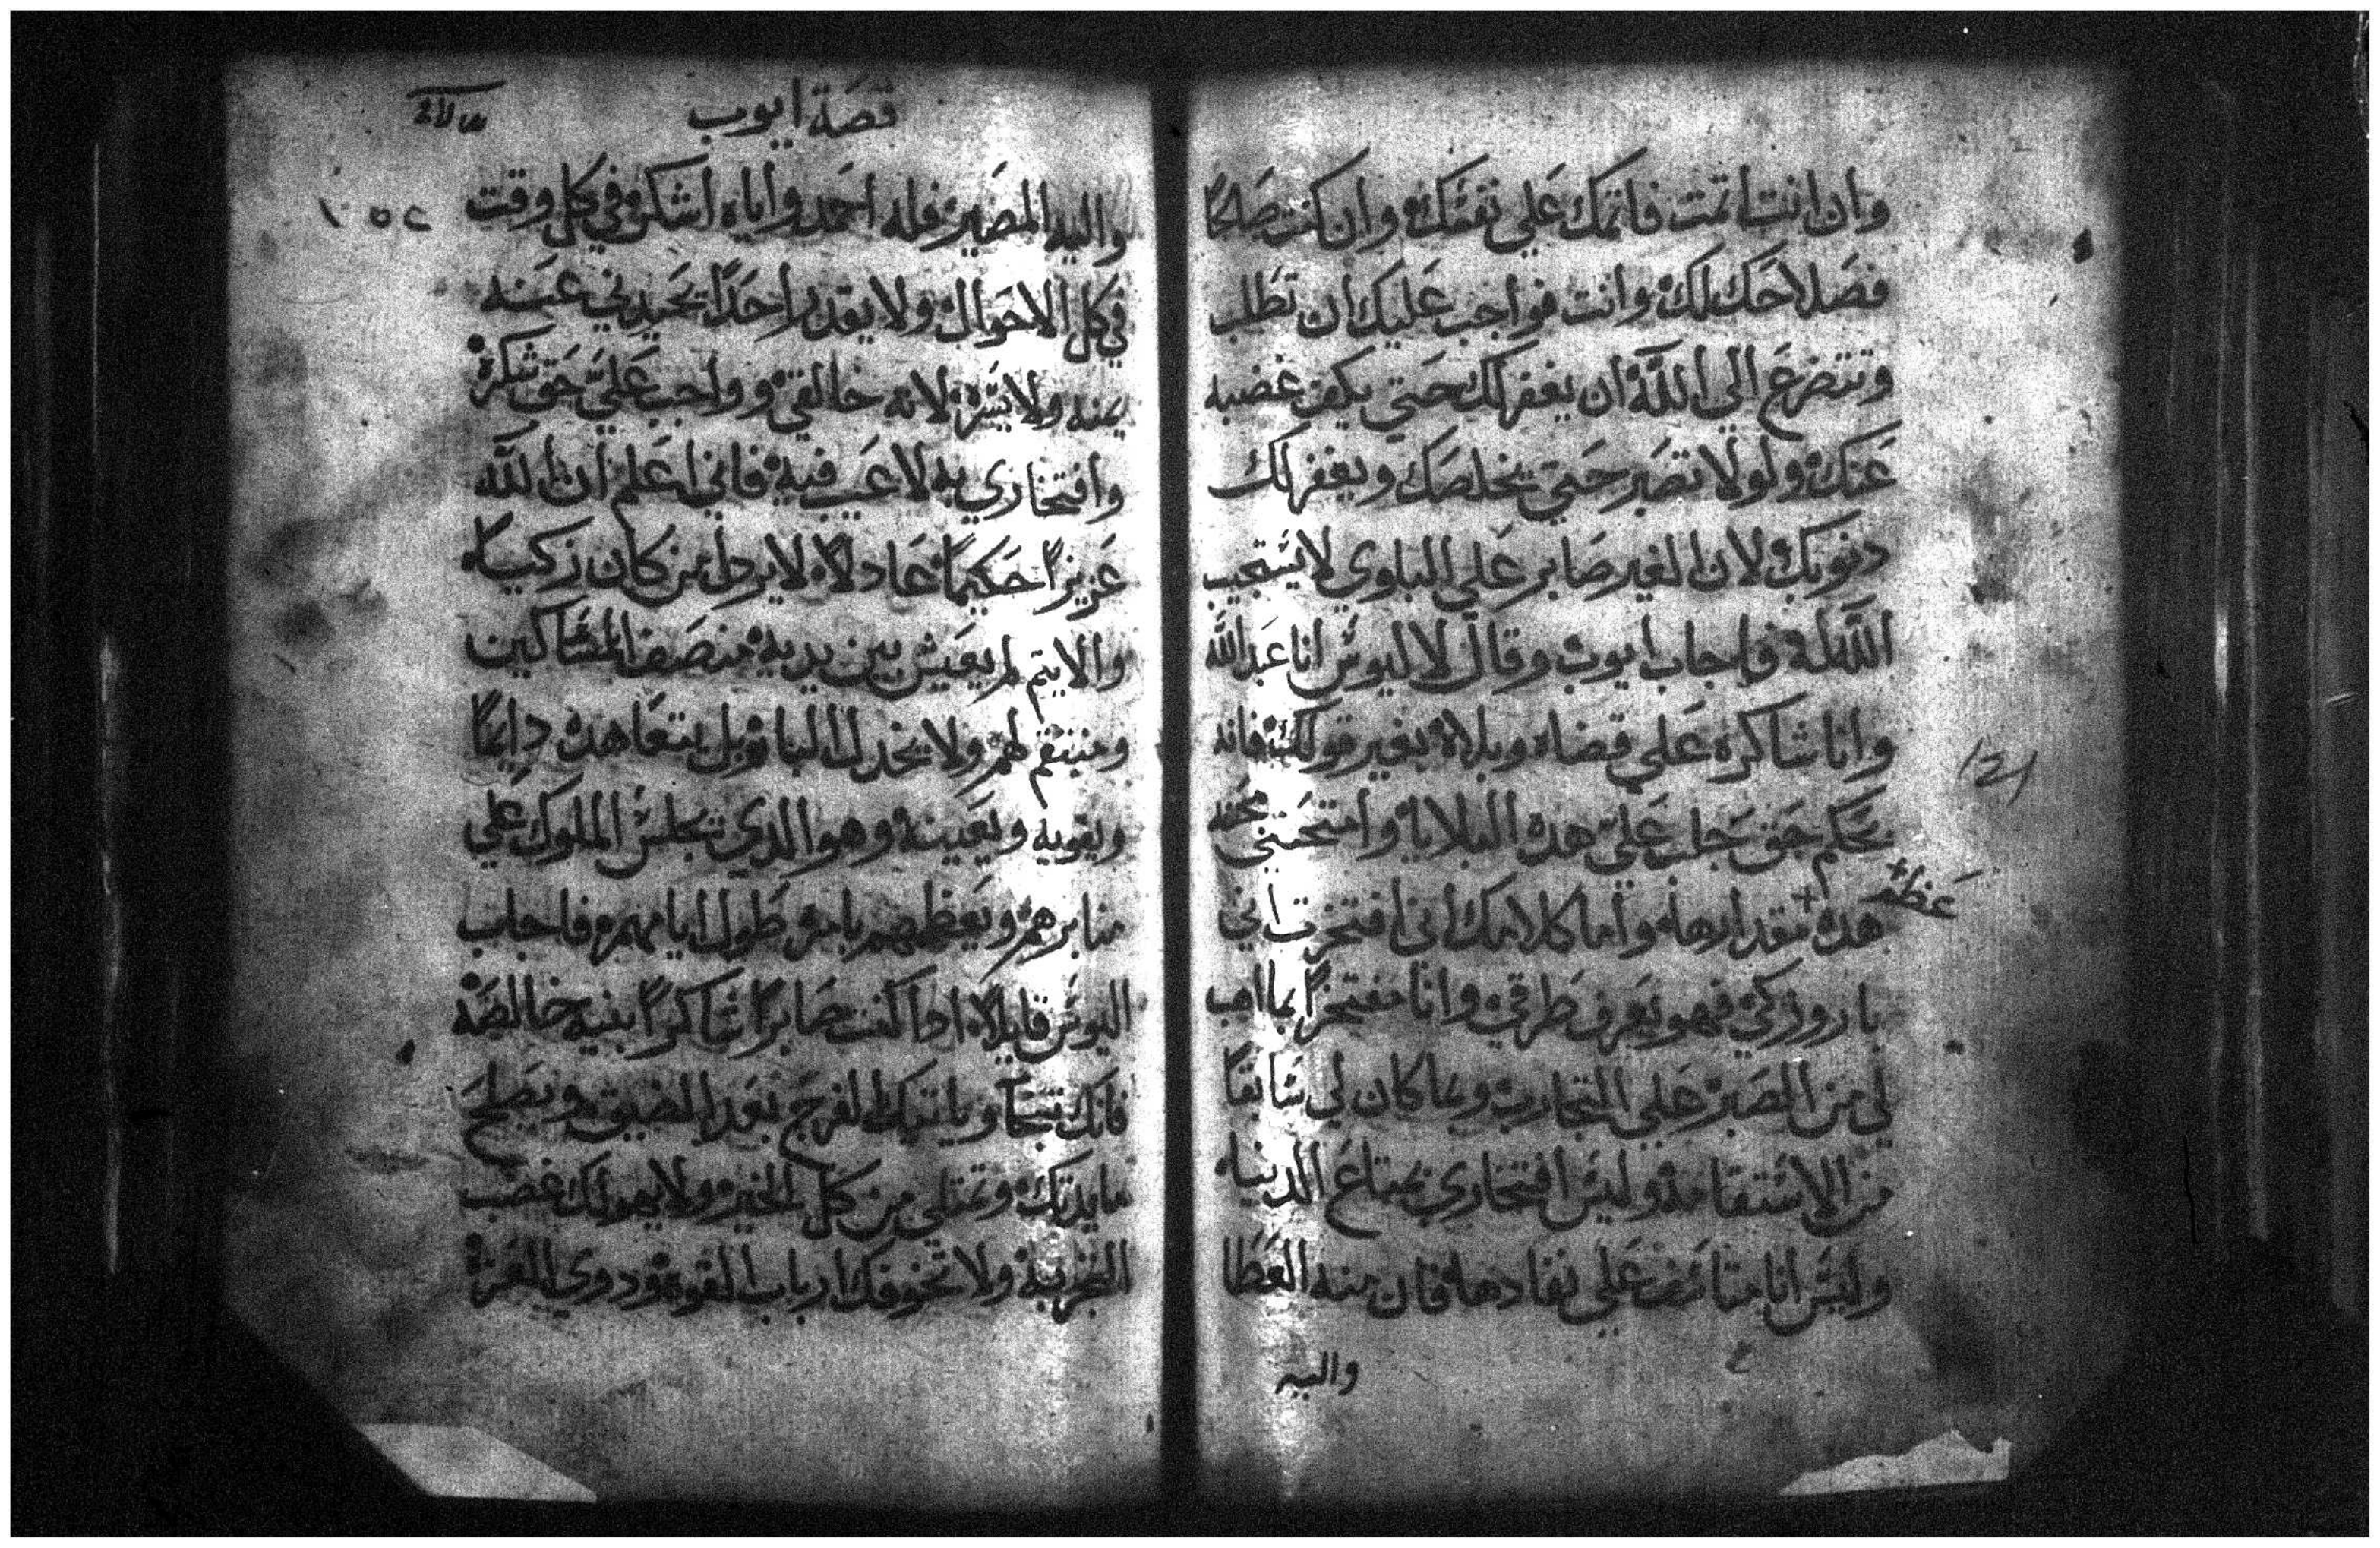 وان انت اتمت فاتمك علي نفسك وان كنت صالحًا
فصلاحك لك وانت فواجب عليك ان تطلب
وتتضرع الي الله ان يغفر لك حتي يكف غضبه
عنك ولولا تصبر حتي يخلصك ويغفر لك
دنوبك لان الغير صابر علي البلوي لا يستجيب
الله له فاجاب ايوب وقال لاليوس انا عبد الله
وانا شاكره علي قضاه وبلاه بغير قولك فانه
بحكم حق جلب علي هده البلايا وامتحنني محنه
عظمه
هده مقدارها واما كلامك اني افتخرت اني
بار وزكي فهو يعرف طرقي وانا مفتخرًا بما اهب
لي من الصبر علي التجارب وبما كان لي سابقًا
من الاستقامه وليس افتخاري بمتاع الدنيا
وليس انا متاسف علي نفادها فان منه العطا
واليه
قصة ايوب
واليه المصير فله احمد واياه اشكر في كل وقت
في كل الاحوال ولا يقدر احدًا يحيدني عنه
يمنه ولا يسره لانه خالقي وواجب علي حق شكره
وافتخاري به لا عيب فيه فاني اعلم ان الله
عزيزًا حكيمًا عادلاً لا يردل من كان زكيًا
والايتم لم يعيش بين يديه منصف المساكين
ومنتقم لهم ولا يخدل البار بل يتعاهده دايمًا
ويقويه ويعينه وهو الدي تجلس الملوك علي
منابرهم ويعظمهم بامره طول ايامهم فاجاب
اليوس قايلاً ادا كنت صابرًا شاكرًا بنيه خالصه
فانك تنجا وياتيك الفرج بعد الضيق وتصلح
مايدتك وتمتلي من كل الخير ولا يهولك غضب
التجربه ولا تخوفك ارباب القوه ودوي العزه